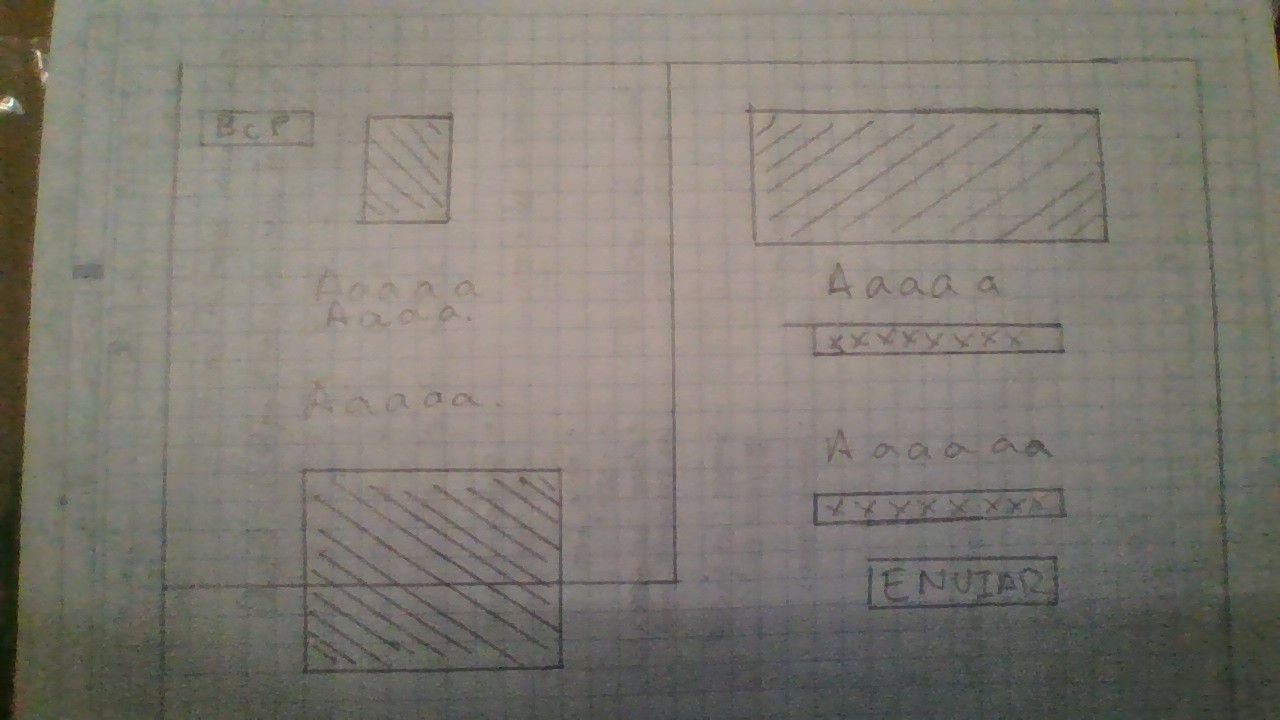 BCP
Aaaaa
Aaaa.
Aaaaa.
Aaaaa
xxxxxxxx
Aaaaaa
xxxxxxxx
ENVIAR